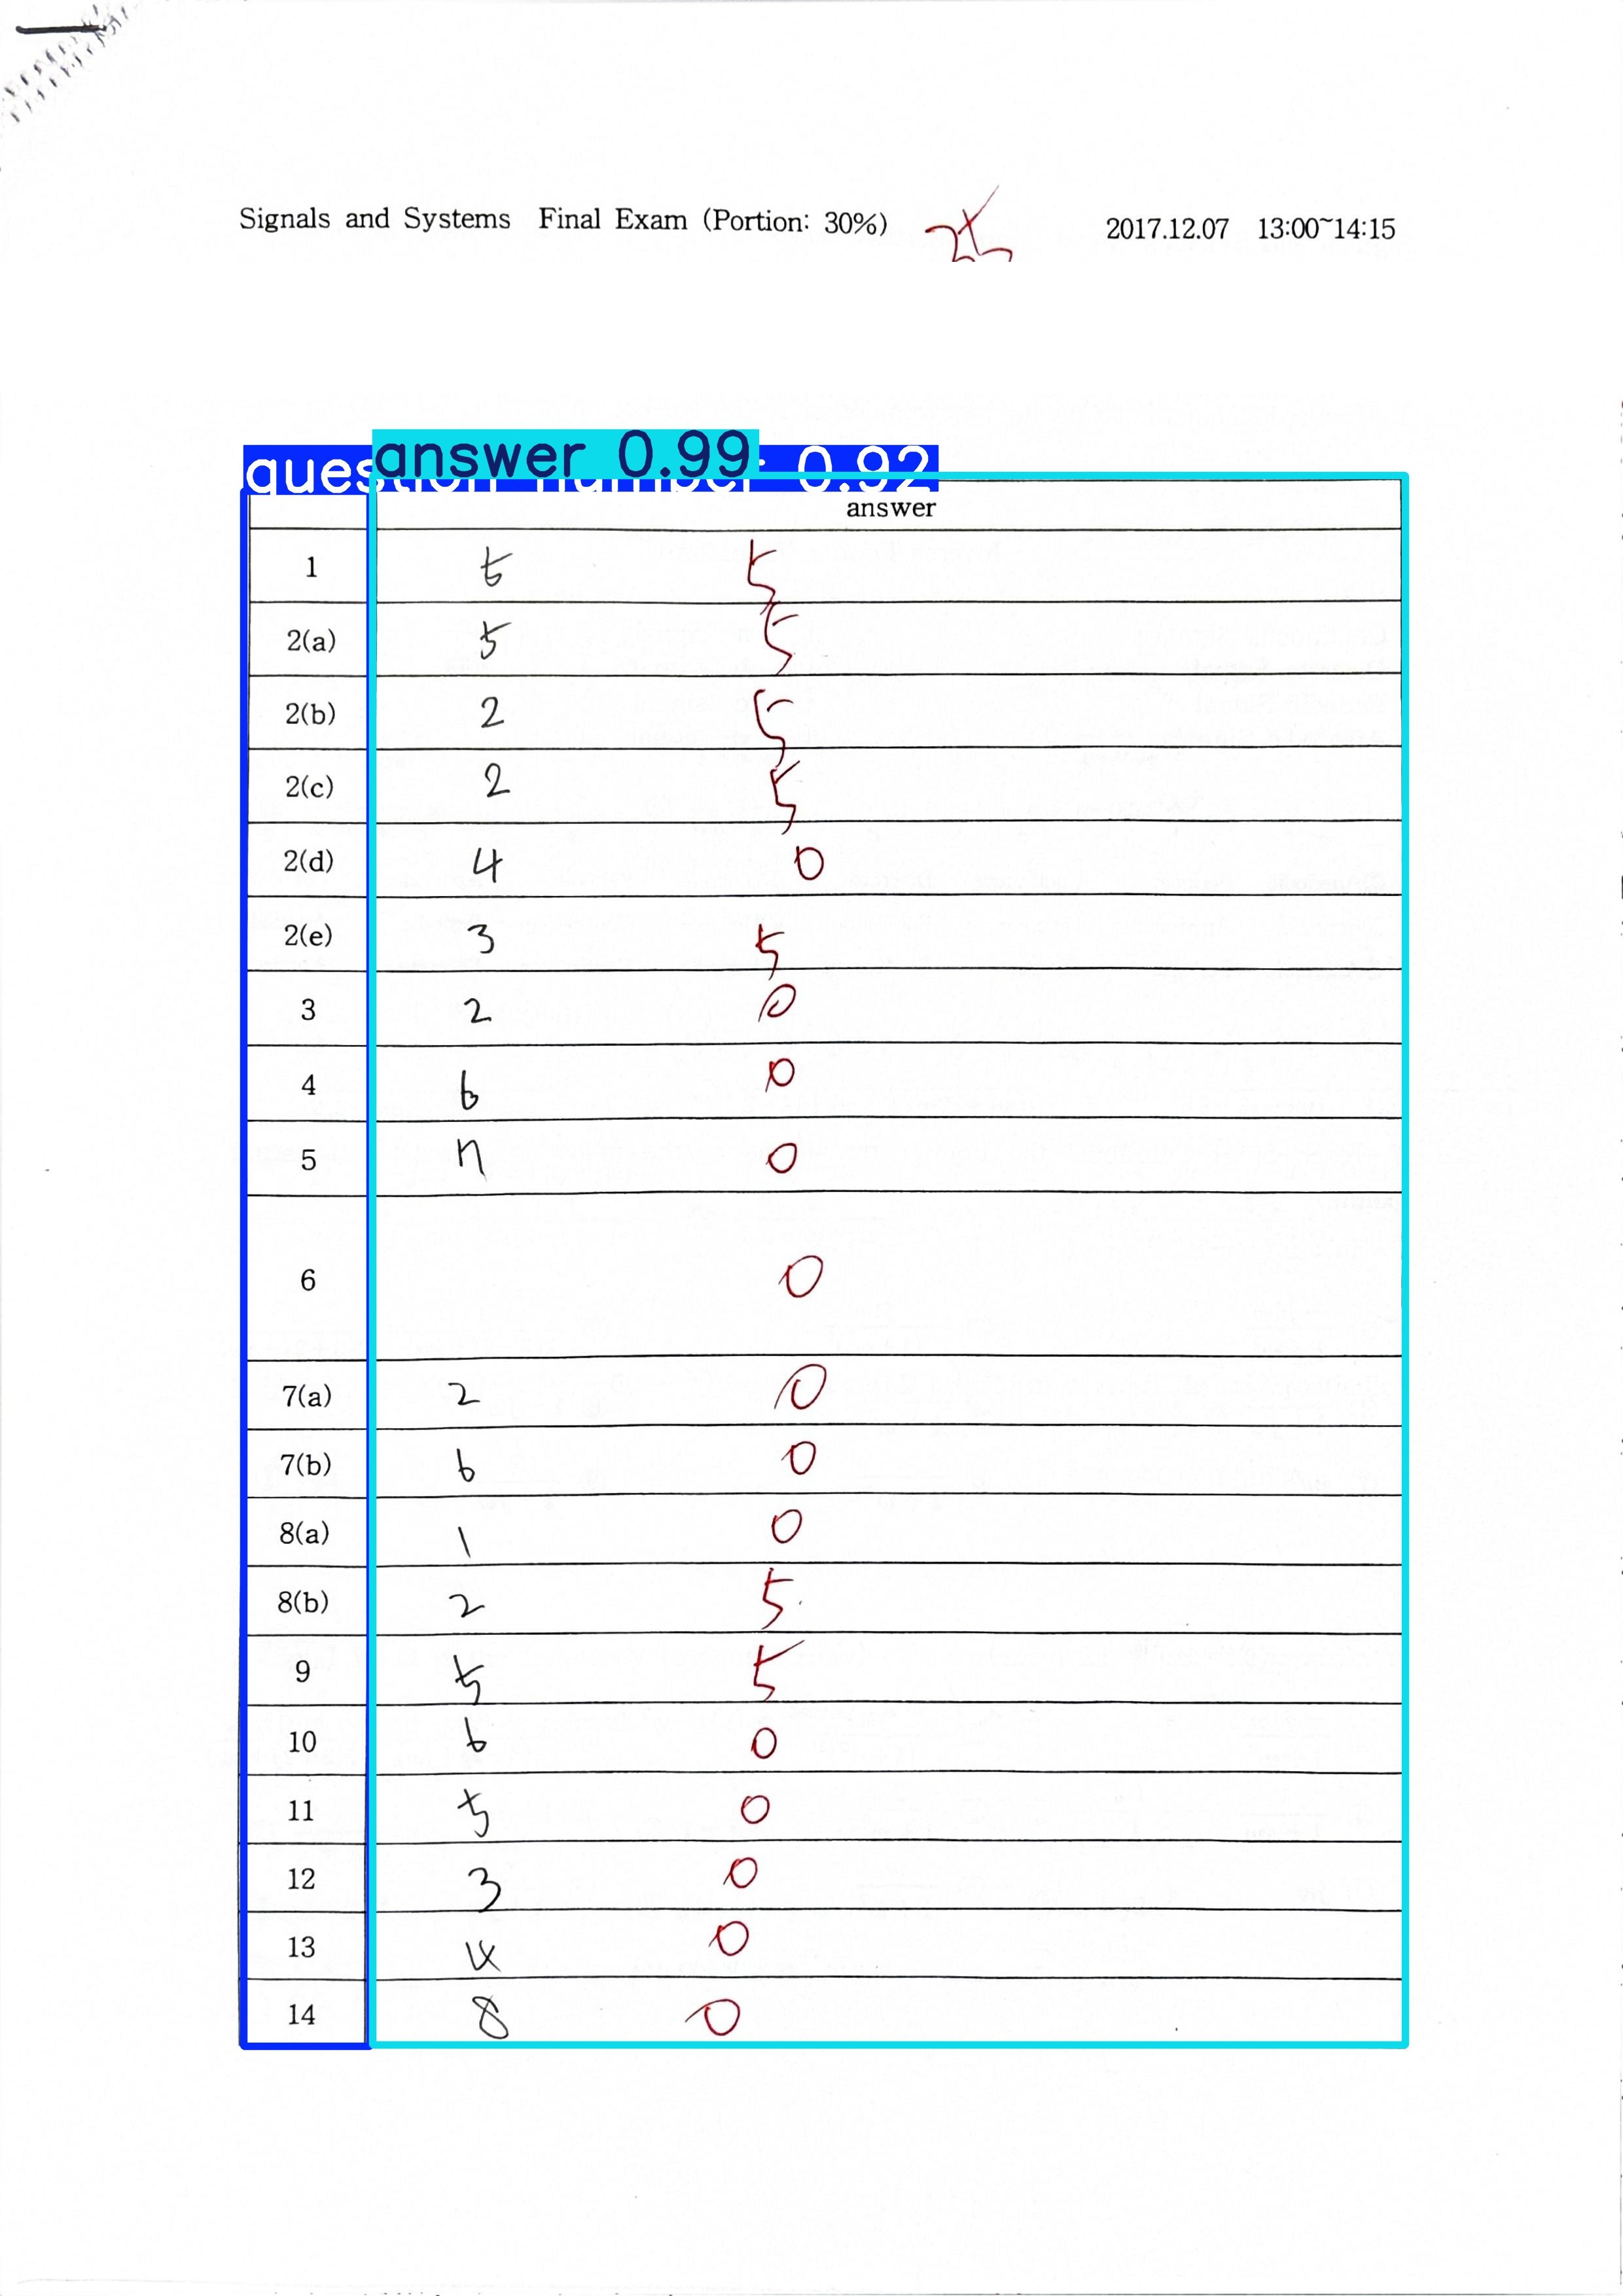 Signals and Systems Final Exam (Portion: 30%) 2017.12.07 13:00~14:15
answer 0.99
0.92
answer
1 5 5
2(a) 5 5
2(b) 2 5
2(c) 2 5
2(d) 4 0
2(e) 3 5
3 2 0
4 6 0
5 n 0
6 0
7(a) 2 0
7(b) 6 0
8(a) 1 0
8(b) 2 5
9 5 5
10 6 0
11 5 0
12 3 0
13 4 0
14 8 0